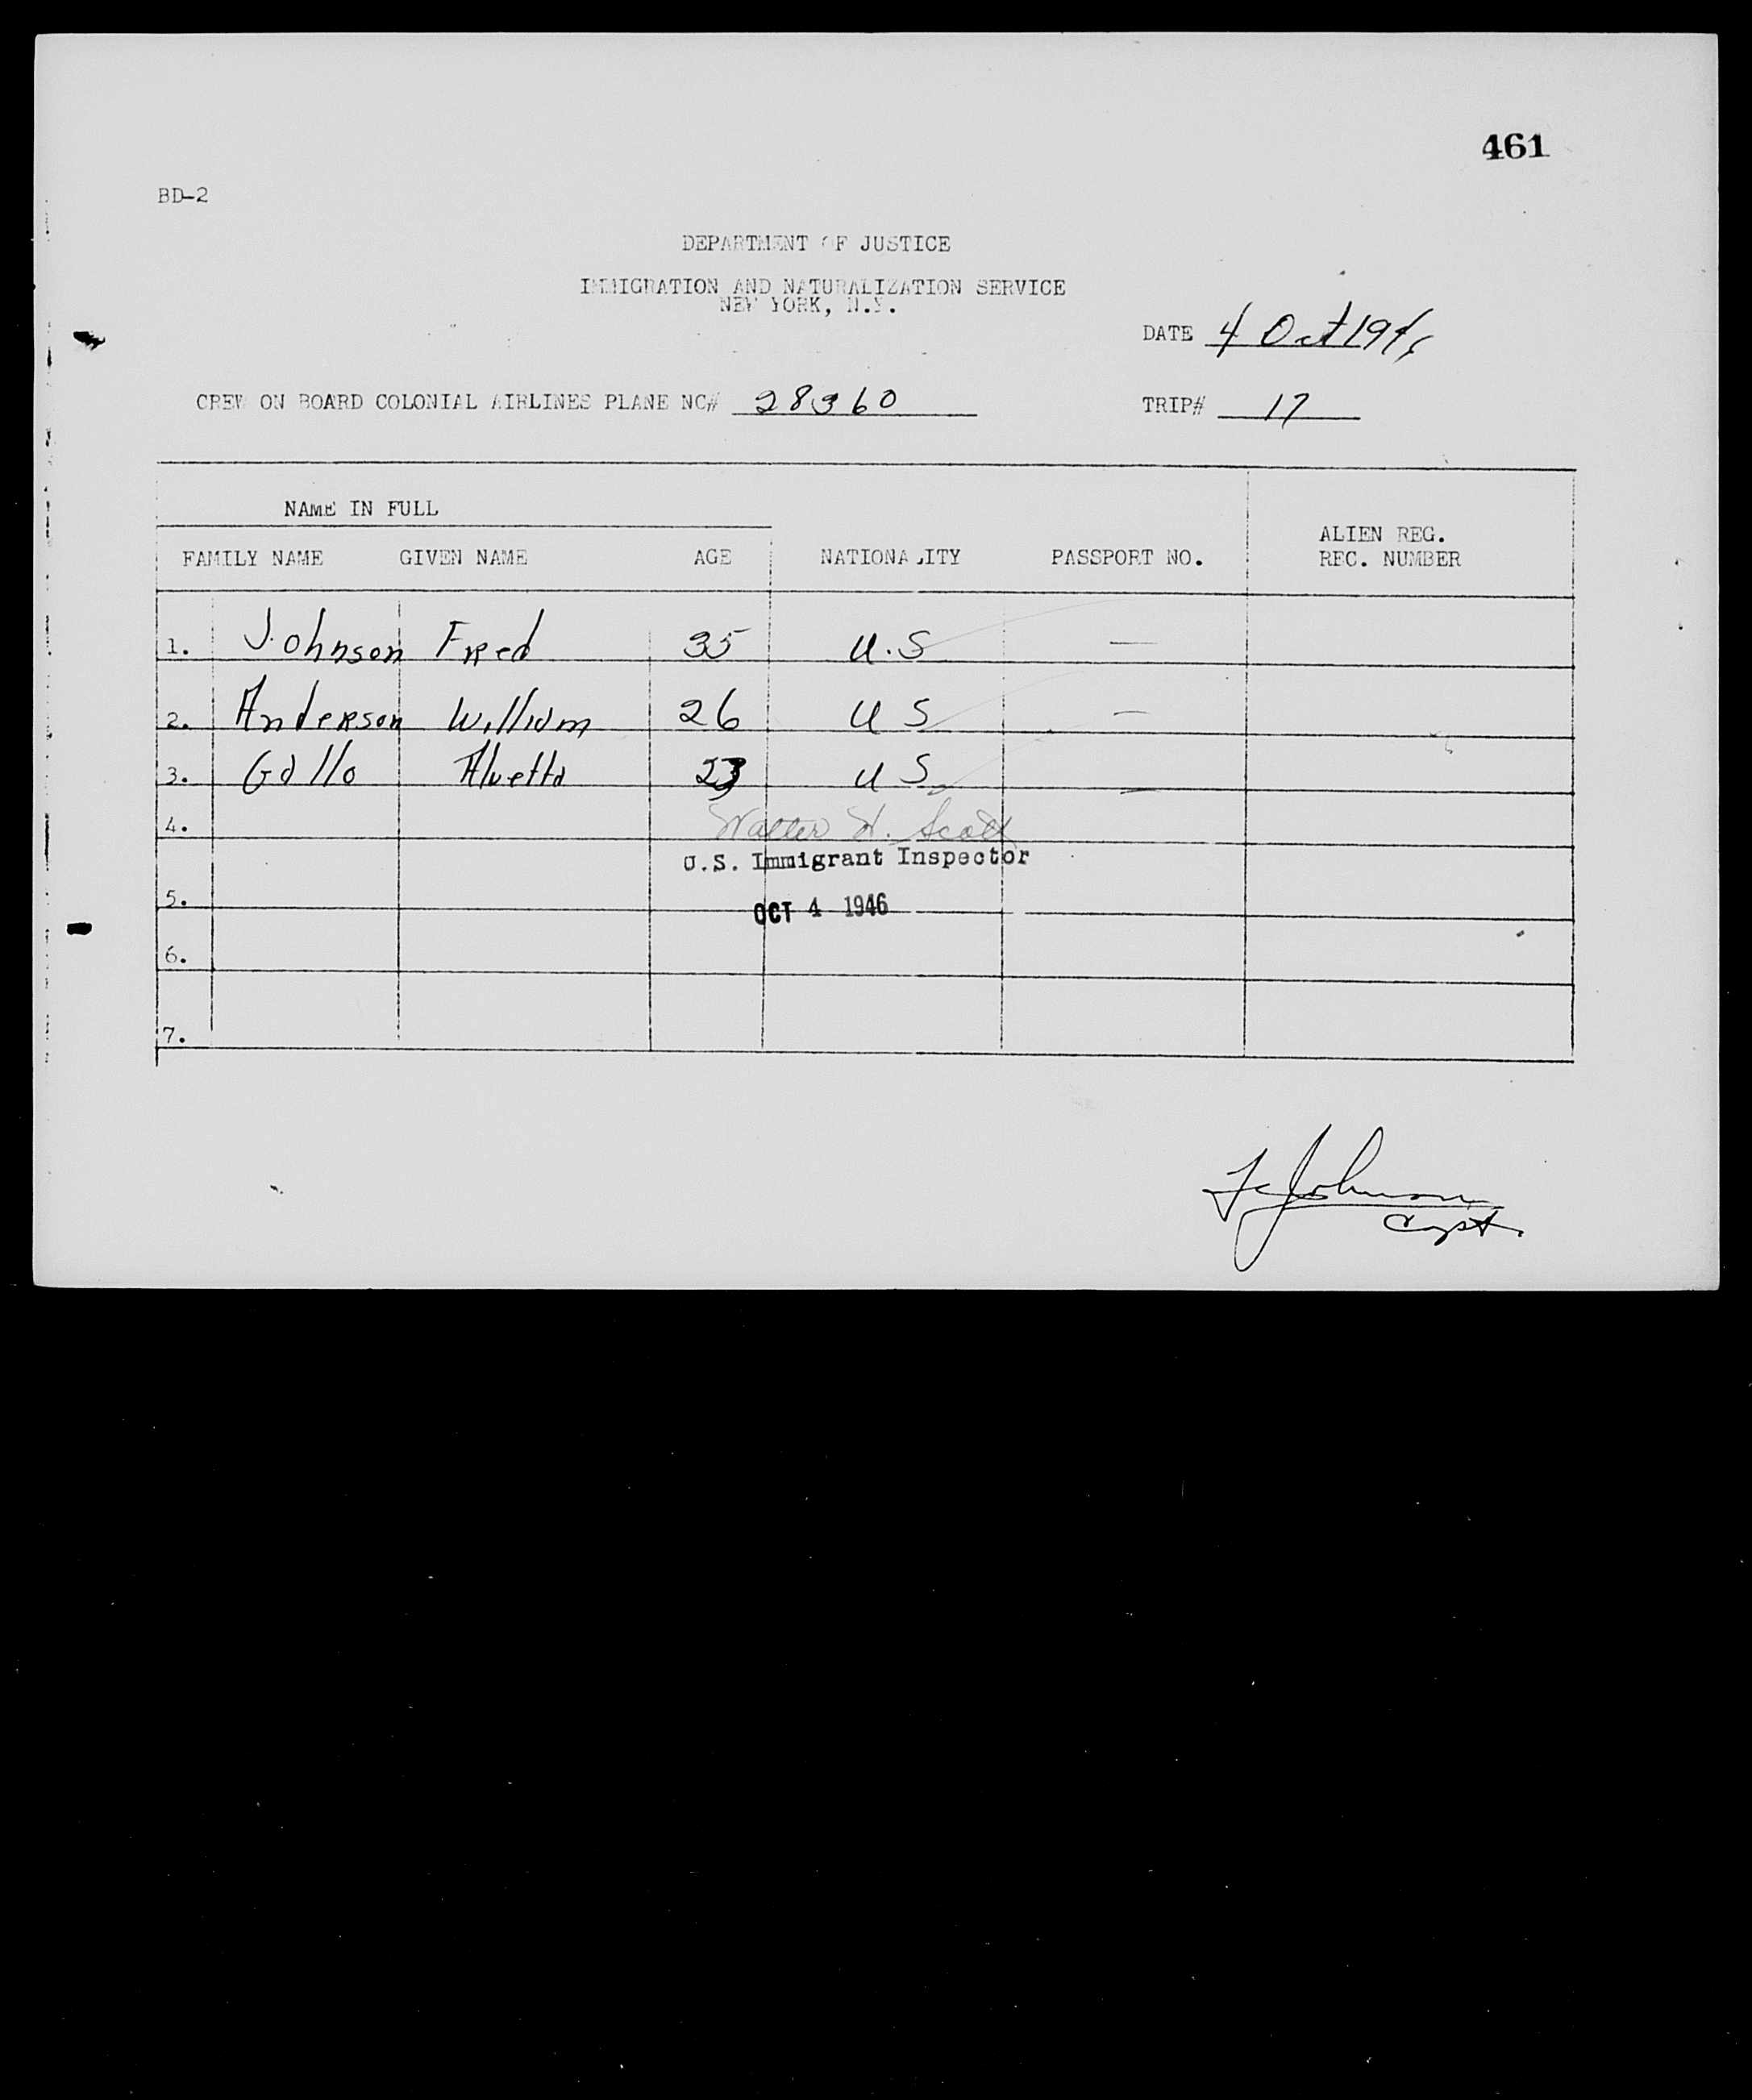 461
BD-2
DEPARTMENT OF JUSTICE
IMMIGRATION AND NATURALIZATION SERVICE
NEW YORK, N.Y.
DATE 4 Oct 1946
CREW ON BOARD COLONIAL AIRLINES PLANE NC# 28360
TRIP# 17
NAME IN FULL
FAMILY NAME GIVEN NAME AGE NATIONALITY PASSPORT NO. ALIEN REG. REC. NUMBER
1. Johnson Fred 35 U.S —
2. Anderson William 26 U S —
3. Gallo Alvetta 23 U S —
4. Walter W. Scott
U.S. Immigrant Inspector
5. OCT 4 1946
6.
7.
F Johnson
Capt.